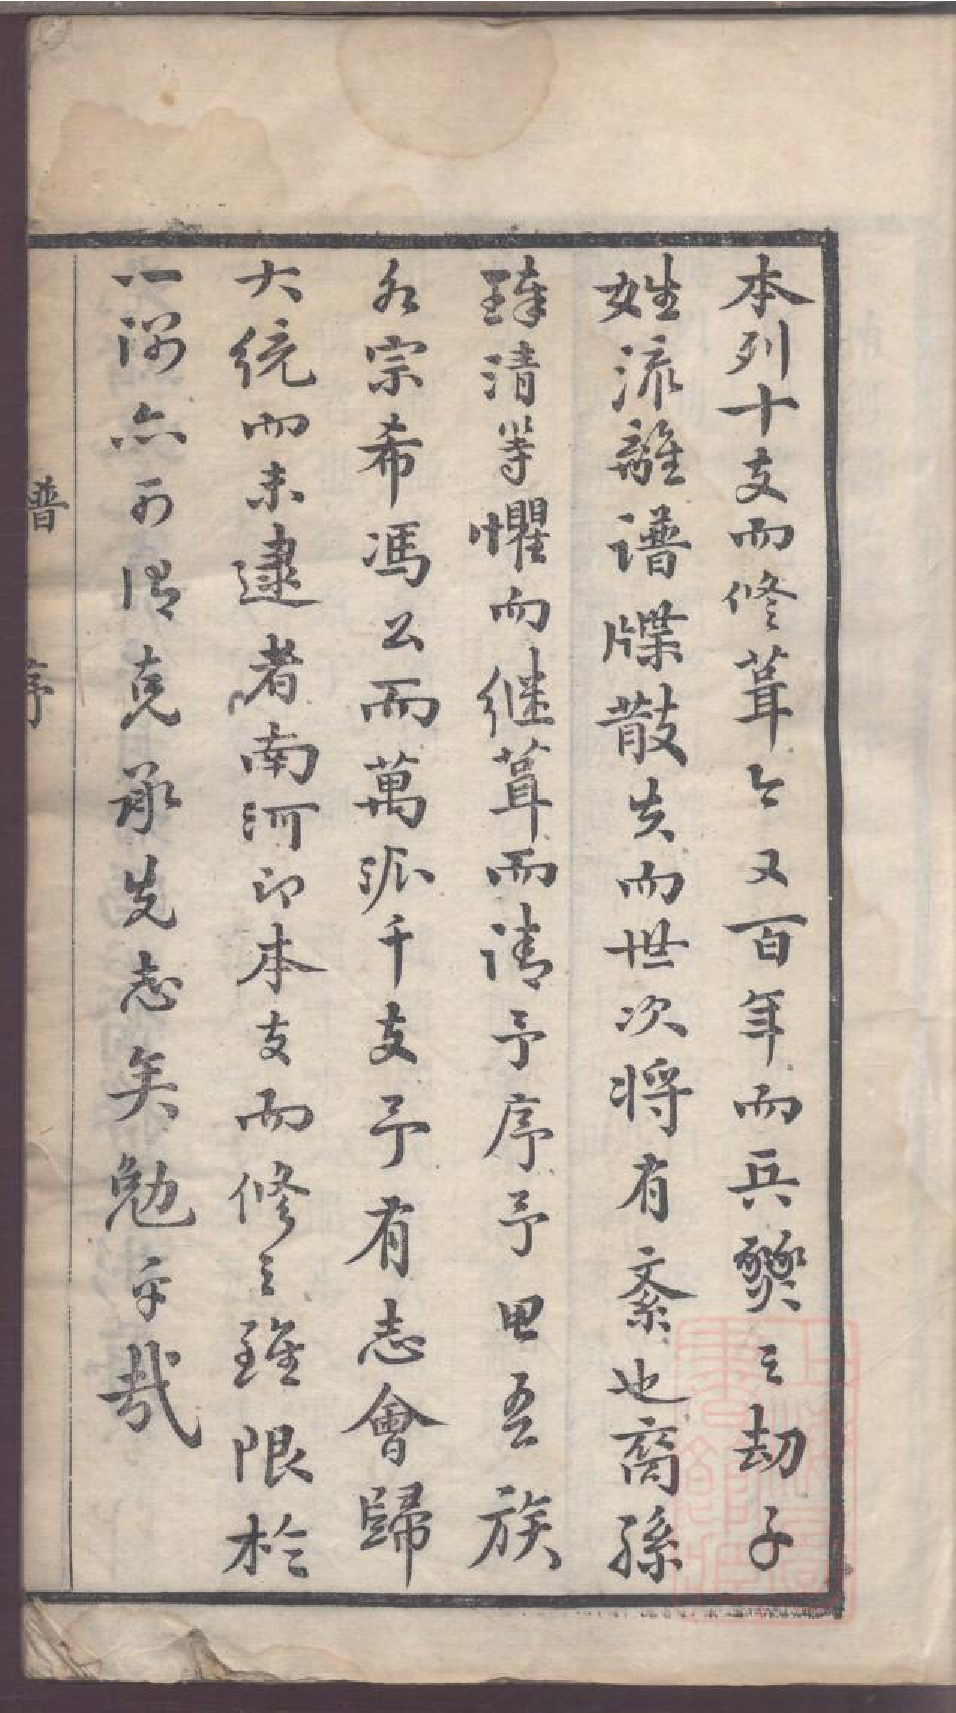 本列十支而修葺今又百年而兵燹之劫子
姓流離譜牒散失而世次將有紊也裔孫
臻清等懼而継葺而請予序予思吾族
宗希馮公而萬派千支予有志會歸
大統而未逮者南河印本支而修之雖限於
一隅亦可謂克承先志矣勉乎哉
譜
序